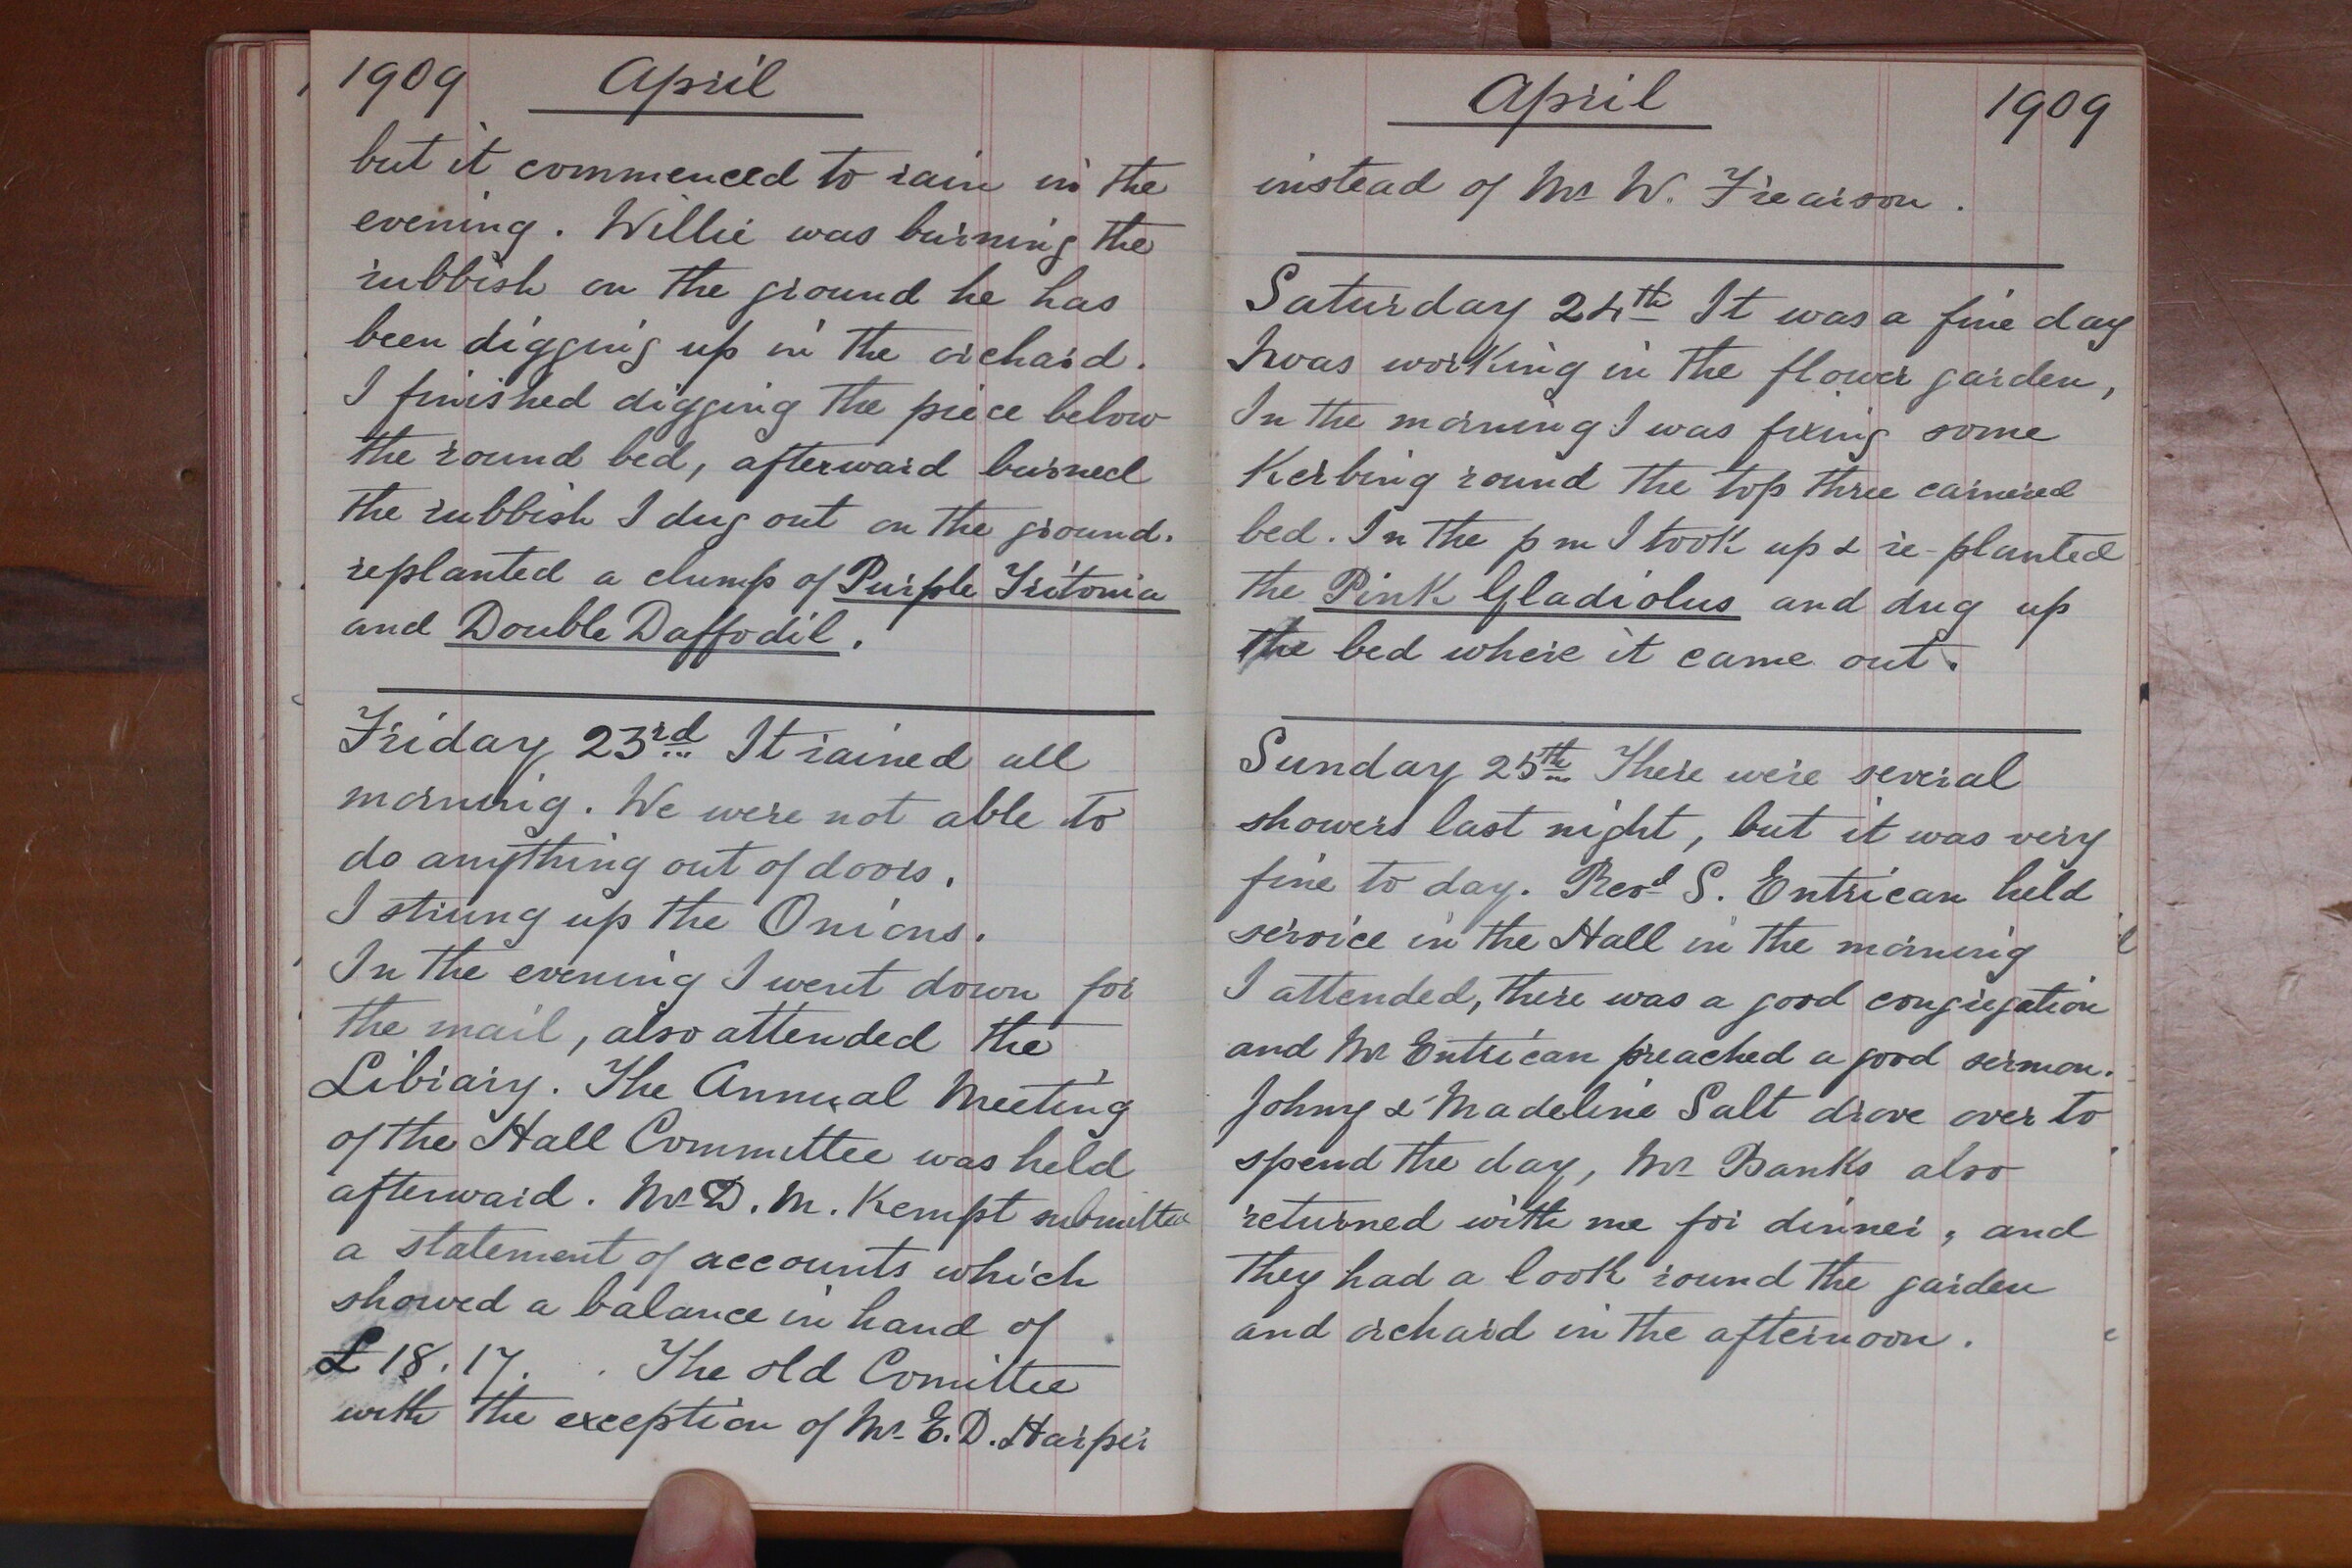 1909 April
but it commenced to rain in the
evening. Willie was burning the
rubbish on the ground he has
been digging up in the orchard.
I finished digging the piece below
the round bed, afterward burned
the rubbish I dug out on the ground.
replanted a clump of Purple Tritonia
and Double Daffodil.
Friday 23rd It rained all
morning. We were not able to
do anything out of doors.
I strung up the Onions.
In the evening I went down for
the mail, also attended the
Library. The Annual Meeting
of the Hall Committee was held
afterward. Mr D. M. Kempt submitted
a statement of accounts which
showed a balance in hand of
£18.17. . The old Comittee
with the exception of Mr E. D. Harper
April 1909
instead of Mr W. Frearson.
Saturday 24th It was a fine day
I was working in the flower garden,
In the morning I was fixing some
Kerbing round the top three cornered
bed. In the pm I took up & re-planted
the Pink Gladiolus and dug up
the bed where it came out.
Sunday 25th There were several
showers last night, but it was very
fine to day. Revd S. Entrican held
service in the Hall in the morning
I attended, there was a good congregation
and Mr Entrican preached a good sermon.
Johny & Madeline Salt drove over to
spend the day, Mr Banks also
returned with me for dinner, and
they had a look round the garden
and orchard in the afternoon.